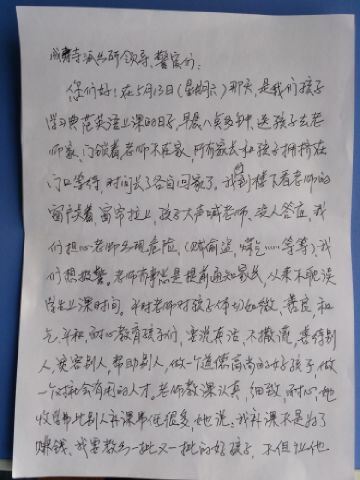 派出所领导、警官们:
你们好!在5月13日(星期六)那天,是我们孩子
学习典范英语上课的日子,早晨八点多钟,送孩子去老
师家,门锁着,老师不在家,所有家长和孩子拥挤在
门口等待,时间长了各自回家了。我到楼下看老师的
窗户关着,窗帘拉上,孩子大声喊老师,没人答应,我
们担心老师出现危险,(贼偷盗,煤气……等等)、我
们想报警。老师有事总是提前通知家长,从来不耽误
学生上课时间。平时老师对孩子体切细微,善良、和
气、平和,耐心教育孩子们,要说真话,不撒谎,善待别
人,宽容别人,帮助别人,做一个道德高尚的好孩子,做
一个对社会有用的人才。老师教课认真,细致,耐心,她
收费比别人补课费低很多,她说:我补课不是为了
赚钱,我要教出一批又一批的好孩子,不但让他